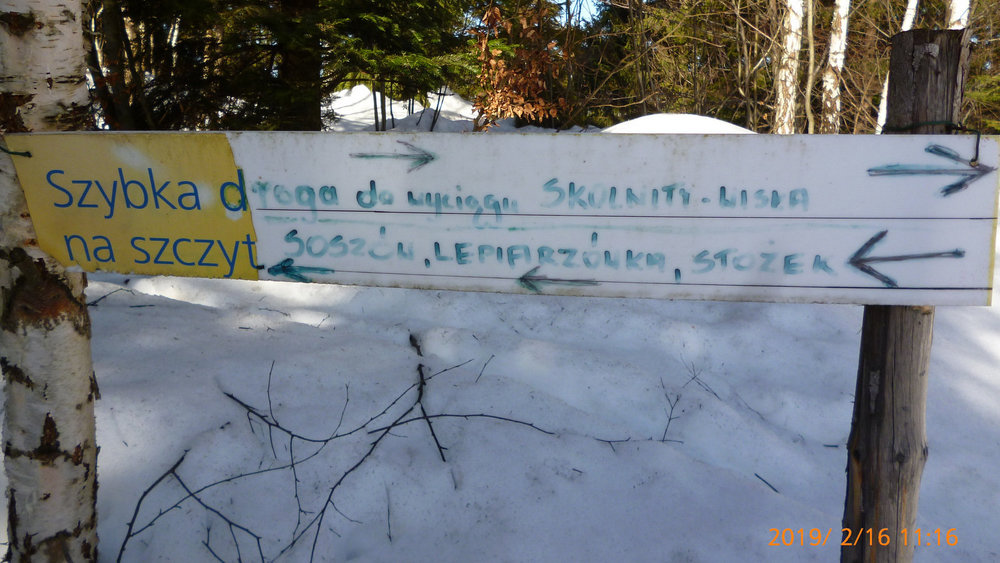 Szybka droga do wyciągu SKOLNITY-WISŁA
na szczyt SOSZÓW, LEPIARZÓWKA, STOŻEK
2019/ 2/16 11:16